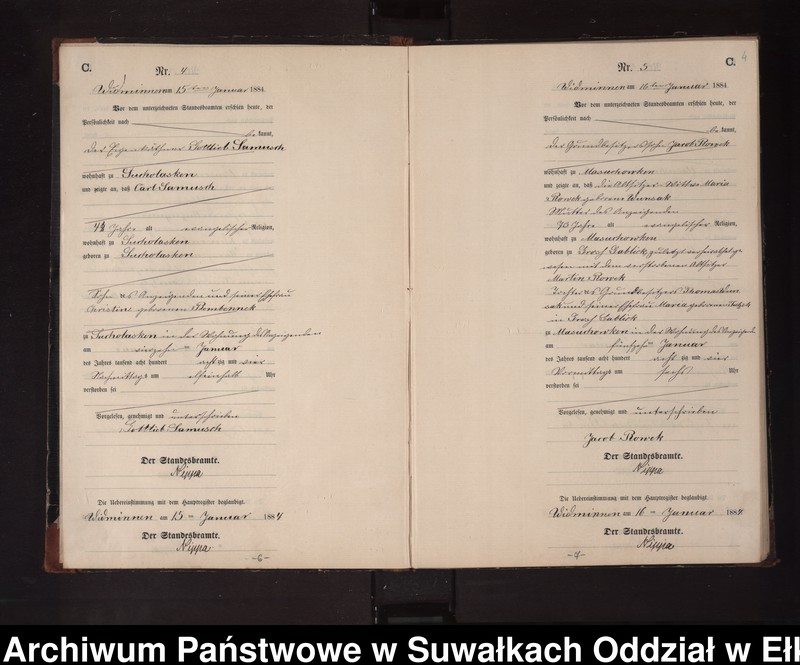 C.
Nr. 4
Widminnen am 15ten Januar 1884
Vor dem unterzeichneten Standesbeamten erschien heute, der
Persönlichkeit nach
be kannt,
der Eigenkäthner Gottlieb Samusch
wohnhaft zu Sucholasken
und zeigte an, daß Carl Samusch
Jahre alt evangelischer Religion,
wohnhaft zu Sucholasken
geboren zu Sucholasken
Sohn des Anzeigenden und seiner Ehefrau
Christine geborenen
zu Sucholasken in der Wohnung des Anzeigenden
am vierzehn ten Januar
des Jahres tausend acht hundert acht zig und vier
Nachmittags um Uhr
verstorben sei
Vorgelesen, genehmigt und unterschrieben
Gottlieb Samusch
Der Standesbeamte.
Nippa
Die Uebereinstimmung mit dem Hauptregister beglaubigt.
Widminnen am 15 ten Januar 1884
Der Standesbeamte.
Nippa
-6-
4
C.
Nr. 5
Widminnen am 16ten Januar 1884
Vor dem unterzeichneten Standesbeamten erschien heute, der
Persönlichkeit nach
be kannt,
der Grundbesitzersohn Jacob Rowek
wohnhaft zu Masuchowken
und zeigte an, daß die Altsitzer Wittwe Maria
Rowek geborene Wensak
Mutter des Anzeigenden
73 Jahre alt evangelischer Religion,
wohnhaft zu Masuchowken
geboren zu Gross Gablick zuletzt verheirathet ge
wesen mit dem verstorbenen Altsitzer
Martin Rowek
Tochter des Grundbesitzers Thomas Wen
sak und seiner Ehefrau Maria geborenen
in Gross Gablick
zu Masuchowken in der Wohnung des Anzeigend.
am fünfzehn Januar
des Jahres tausend acht hundert acht zig und vier
Vormittags um sechs Uhr
verstorben sei
Vorgelesen, genehmigt und unterschrieben
Jacob Rowek
Der Standesbeamte.
Nippa
Die Uebereinstimmung mit dem Hauptregister beglaubigt.
Widminnen am 16 ten Januar 1884
Der Standesbeamte.
Nippa
-7-
Archiwum Państwowe w Suwałkach Oddział w Eł